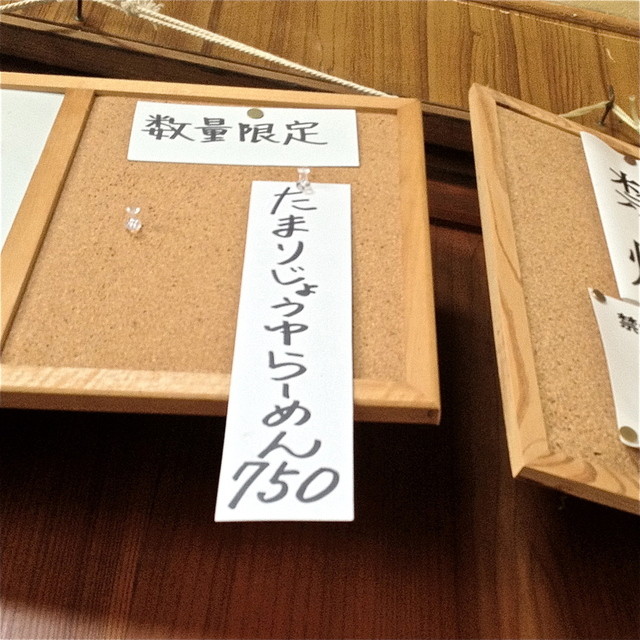 数量限定
たまりじょうゆらーめん
750
禁